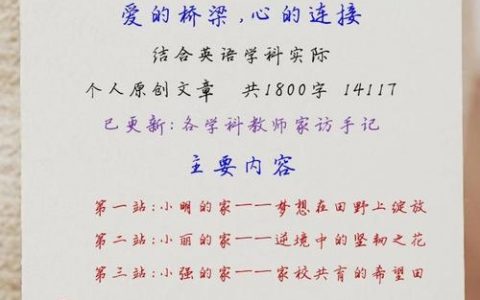 爱的桥梁,心的连接
结合英语学科实际
个人原创文章 共1800字 14117
已更新:各学科教师家访手记
主要内容
第一站:小明的家——梦想在田野上绽放
第二站:小丽的家——逆境中的坚韧之花
第三站:小强的家——家校共育的希望田